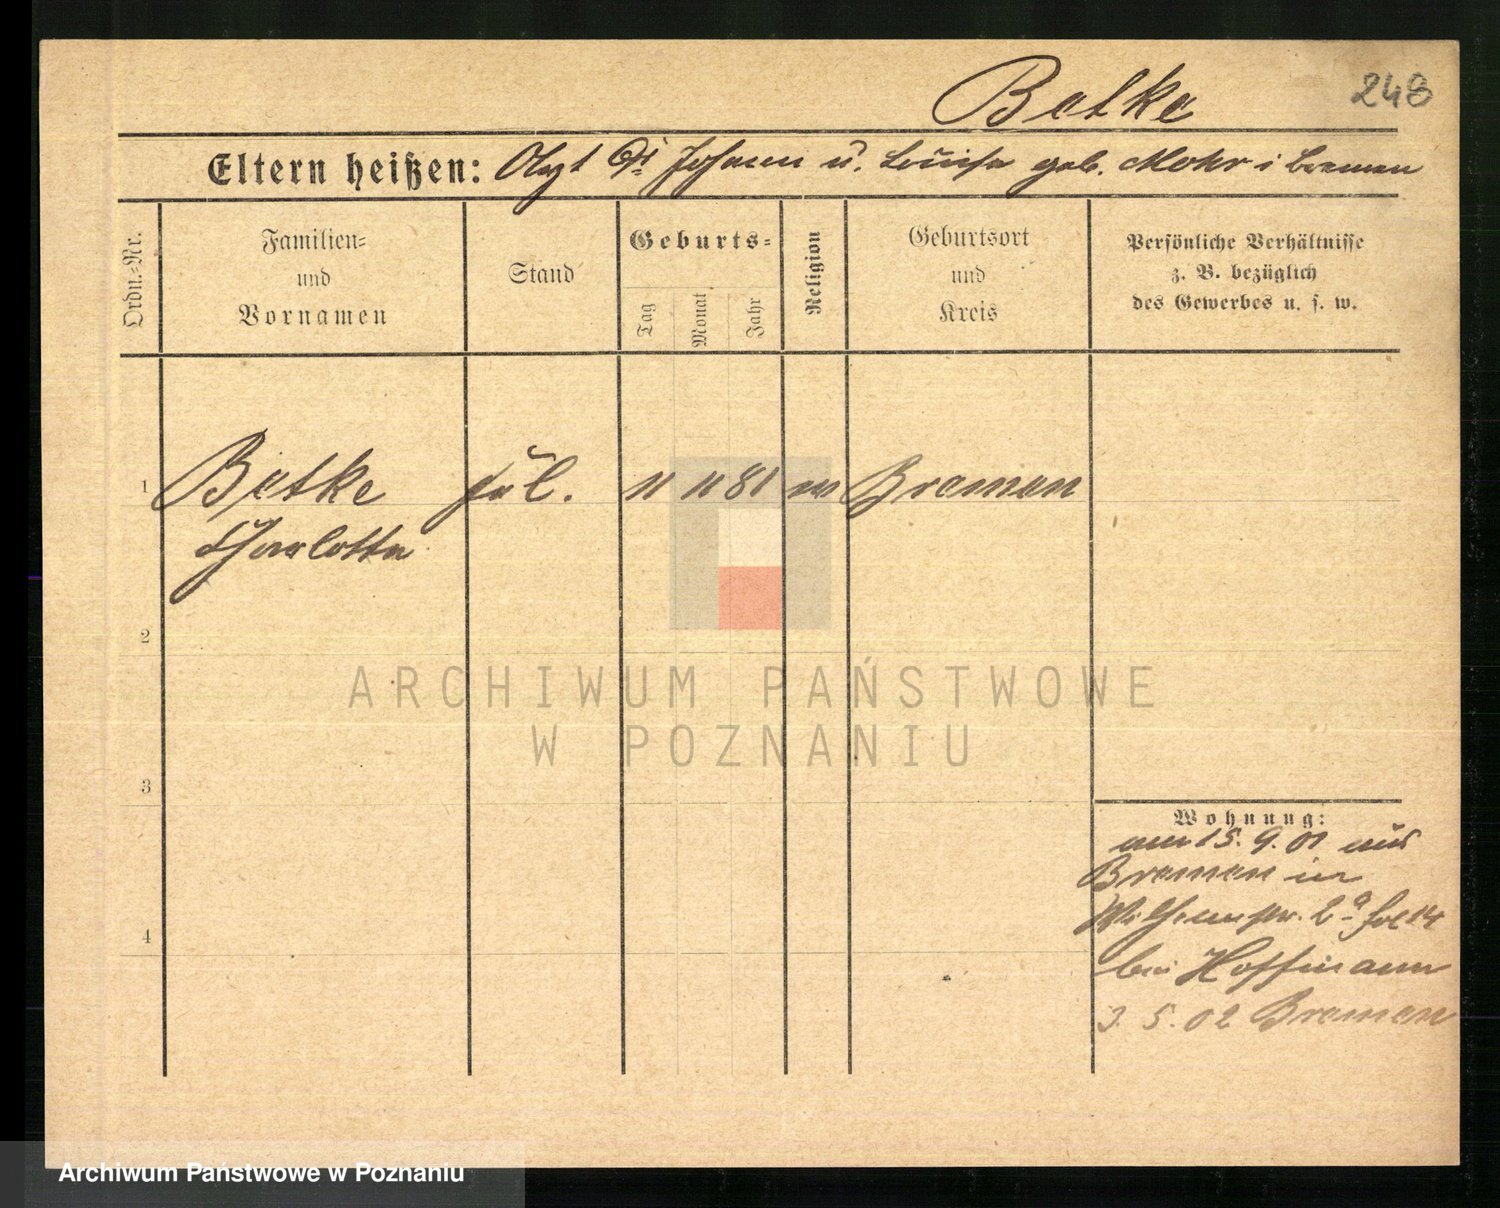 Betke 248
Eltern heißen: Johann u. Louise geb. Mohr i Bremen
Ordn.=Nr.
Familien=
und
Vornamen
Stand
Geburts=
Tag
Monat
Jahr
Religion
Geburtsort
und
Kreis
Persönliche Verhältnisse
z. B. bezüglich
des Gewerbes u. s. w.
1 Betke 11 11 81 Bremen
Charlotte
2
3
Wohnung:
am 15. 9. 01 aus
Bremen in
Wilhelmstr. 2a
4
bei Hoffmann
3. 5. 02 Bremen
ARCHIWUM PAŃSTWOWE
W POZNANIU
Archiwum Państwowe w Poznaniu